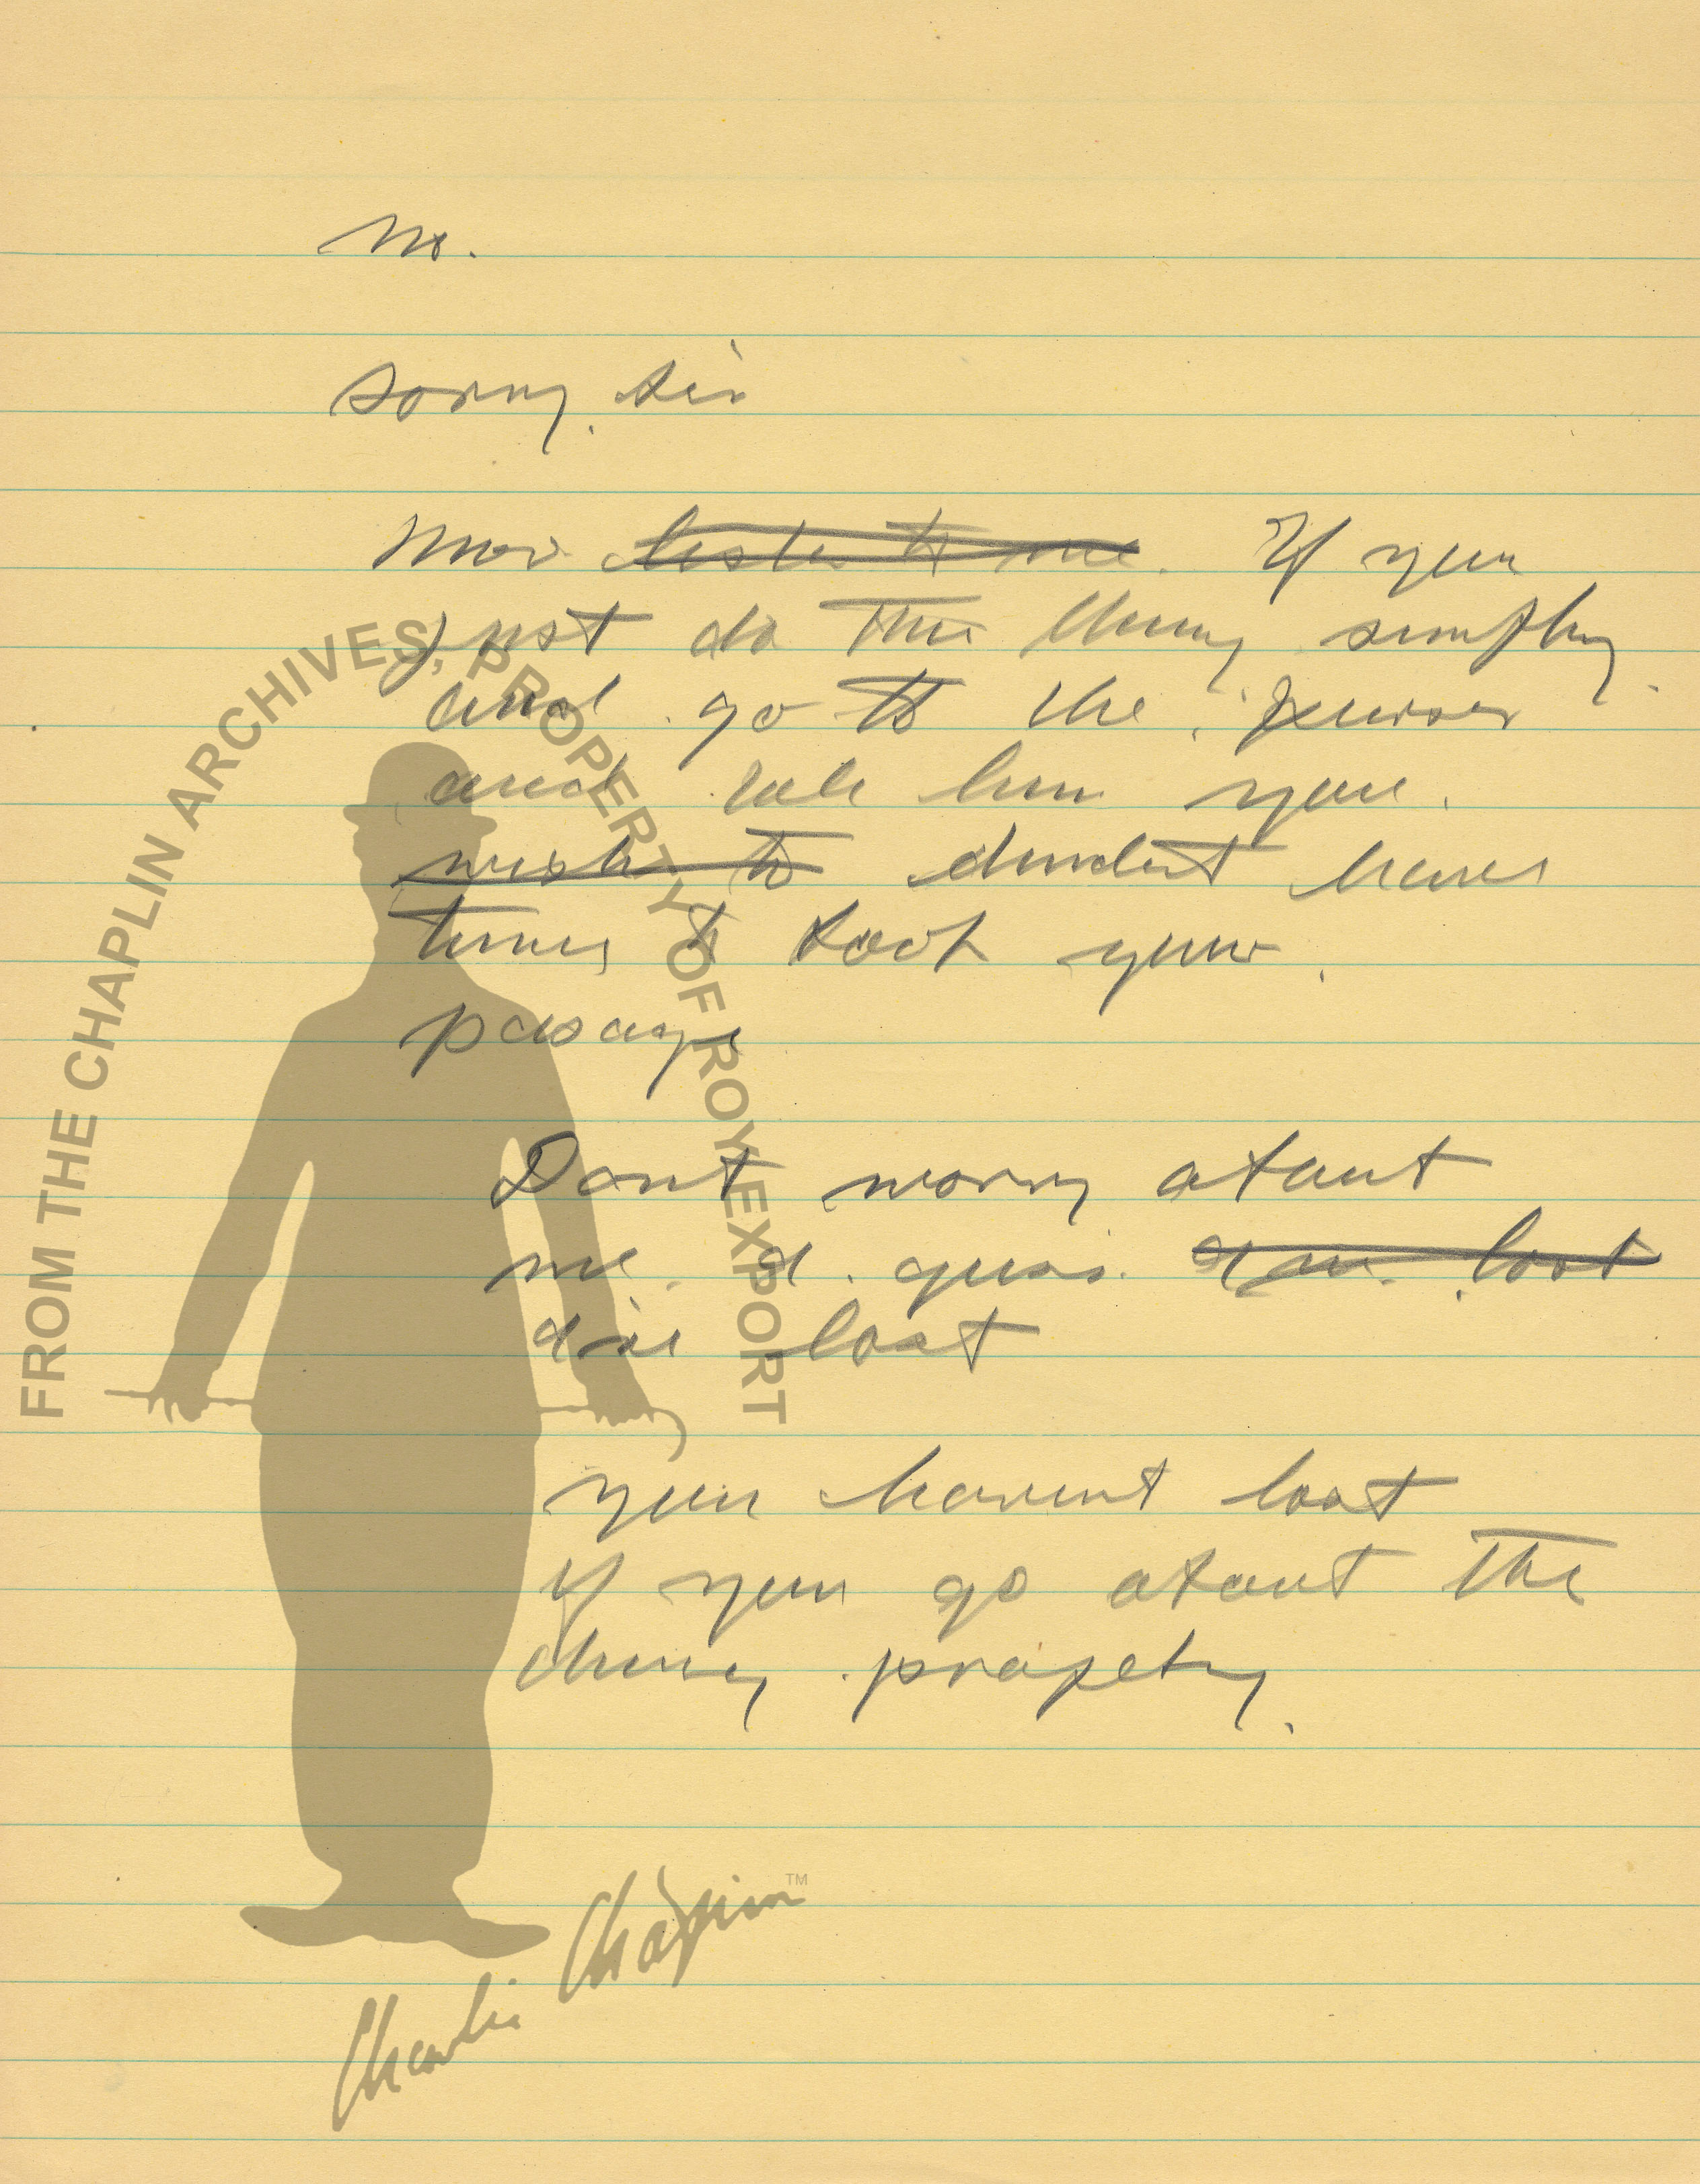 no.
sorry sir
Now ~~listen to me~~. If you
just do this thing simply
and go to the purser
and tell him you
~~wish to~~ dindent have
time to book your
pasage
Dont worry about
me. I guess. ~~I am lost~~
Ive lost
you havent lost
if you go about the
thing propety.
FROM THE CHAPLIN ARCHIVES, PROPERTY OF ROY EXPORT
Charlie Chaplin™